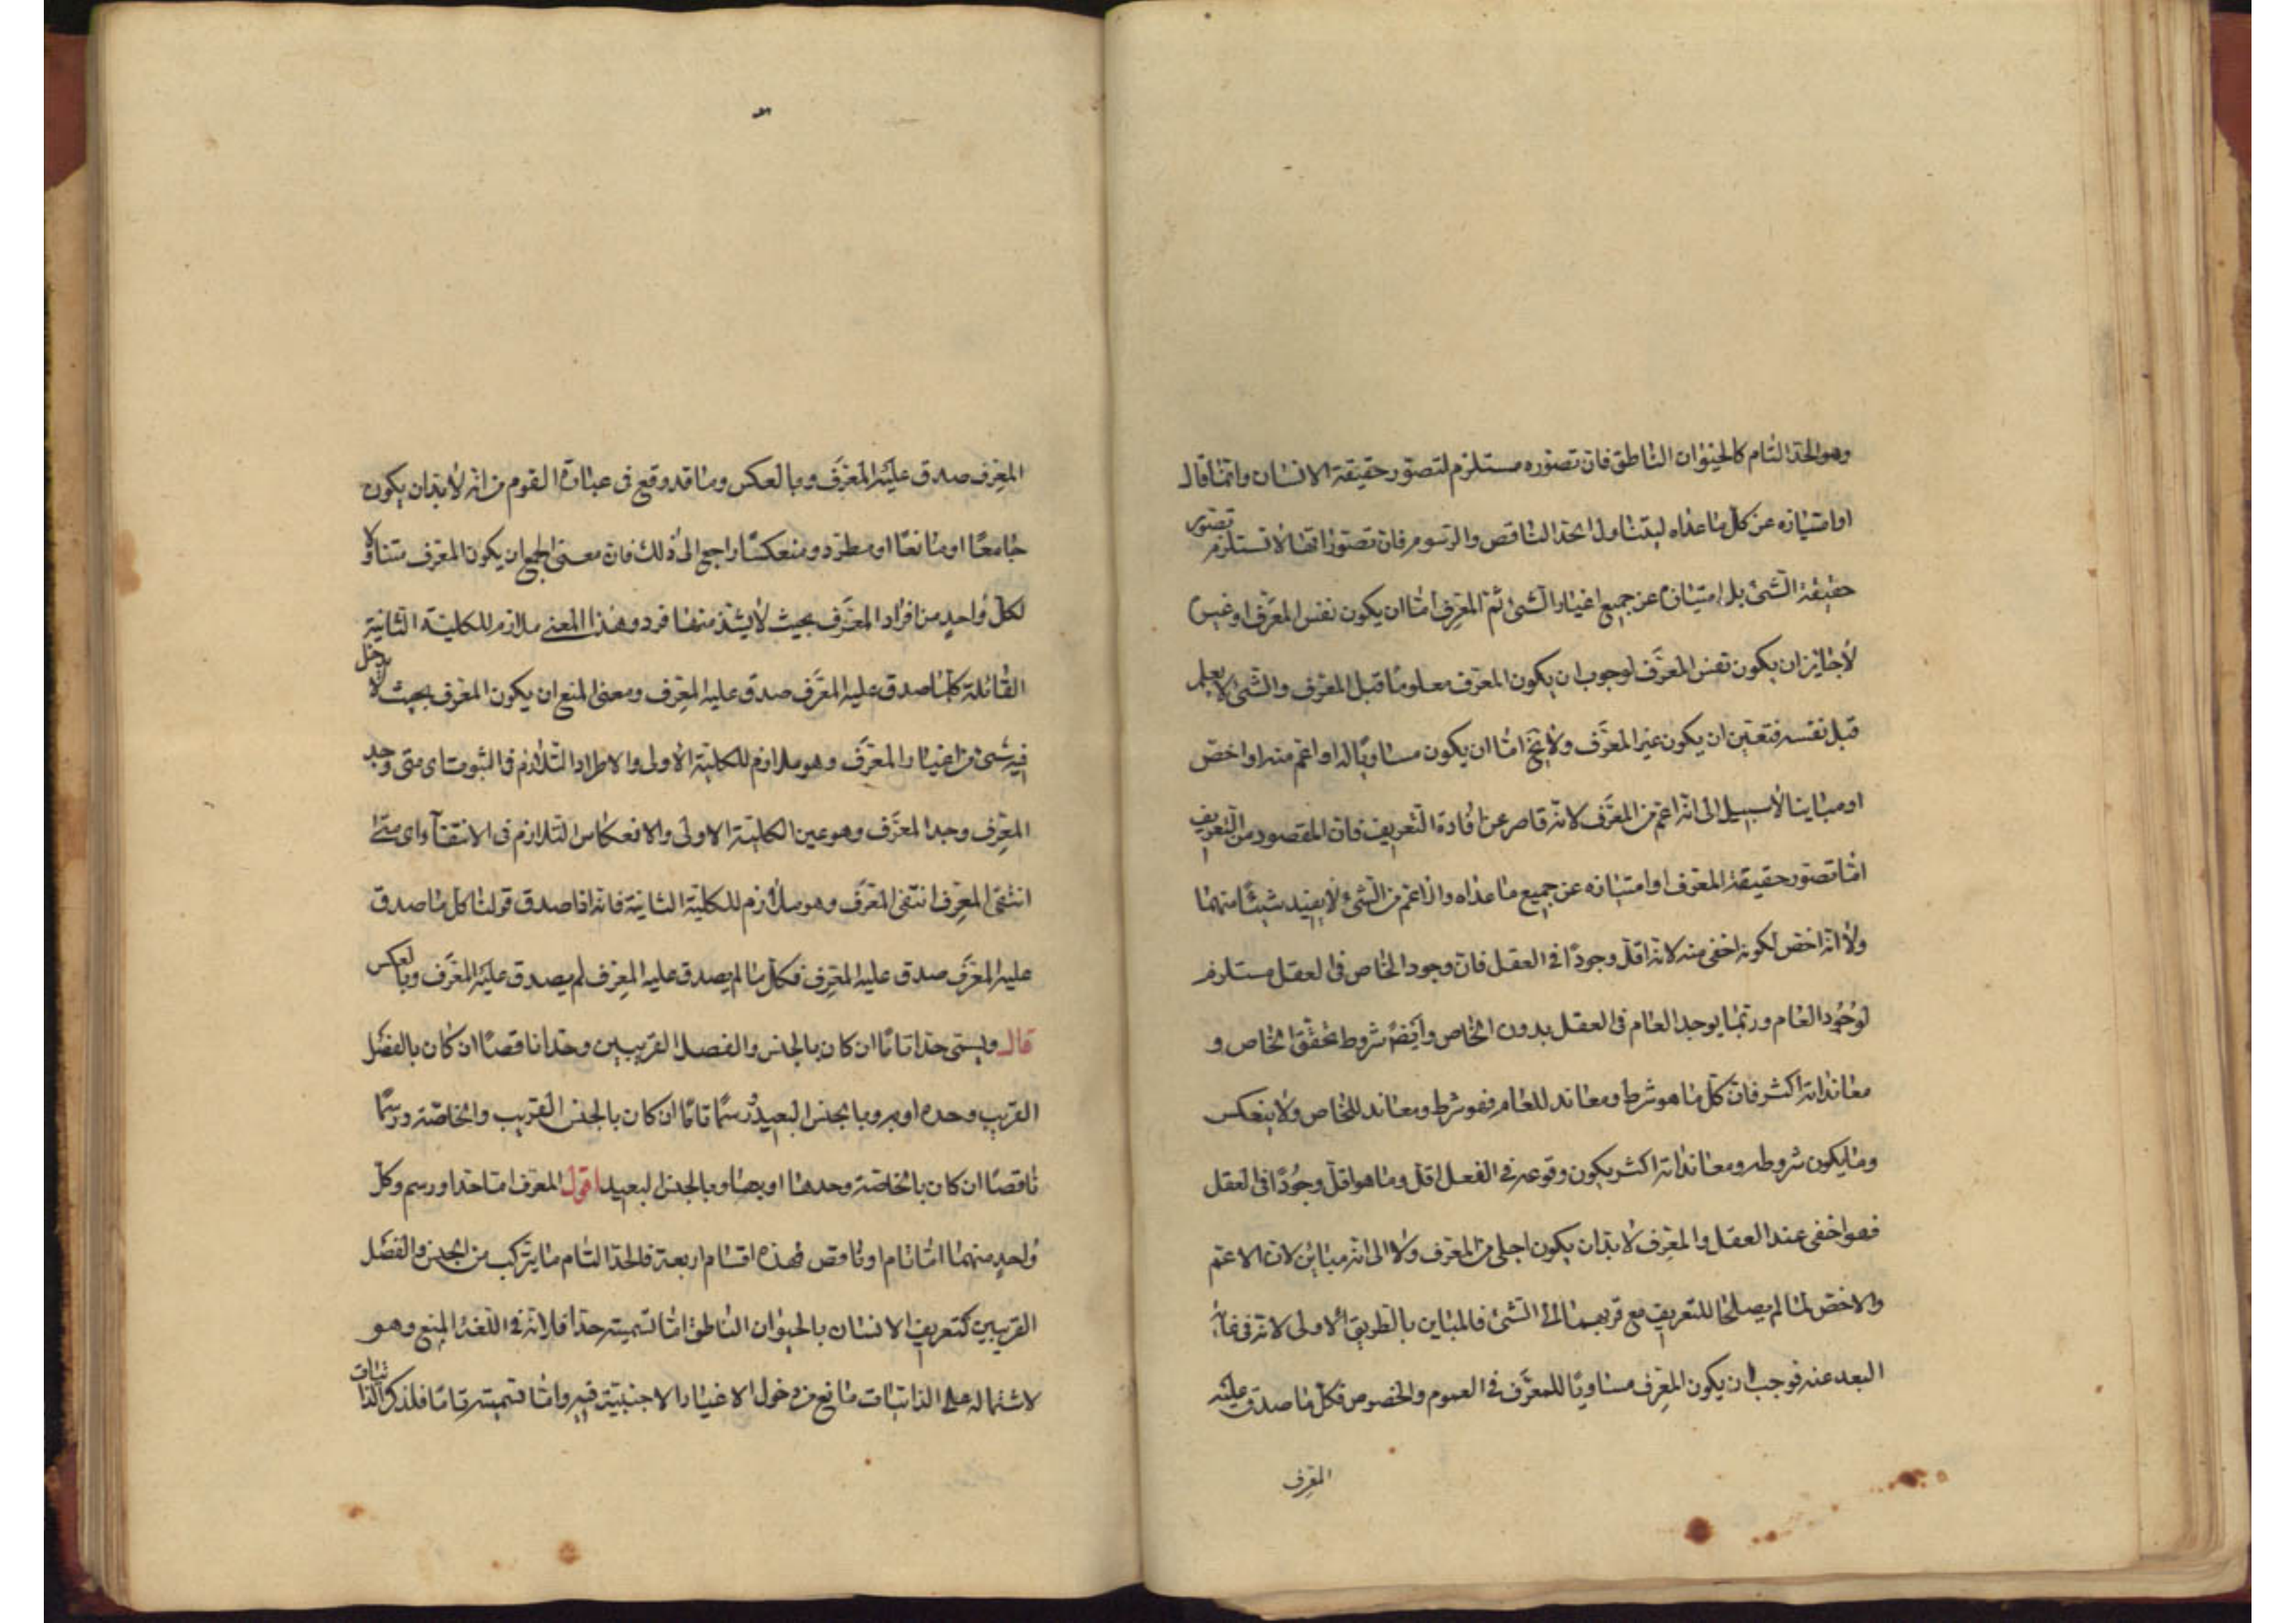 وهو الحدّ التام كالحيوان الناطق فان تصوّره مستلزم لتصوّر حقيقة الانسان وانّما قال
او امتيازه عن كلّ ما عداه ليتناول الحدّ الناقص والرسوم فانّ تصوّراتها لا تستلزم تصوّر
حقيقة الشئ بل امتيازه عن جميع اغيار الشئ ثمّ المعرِّف امّا ان يكون نفس المعرَّف او غيره
لا جايز ان يكون نفس المعرَّف لوجوب ان يكون المعرِّف معلومًا قبل المعرَّف والشئ لا يعلم
قبل نفسه فتعيّن ان يكون غير المعرَّف ولا يخ امّا ان يكون مساويًا له او اعمّ منه او اخصّ
او مباينا لا سبيل الى انّه اعمّ من المعرَّف لانّه قاصر عن افادة التعريف فانّ المقصود من التعريف
امّا تصوّر حقيقة المعرف او امتيازه عن جميع ما عداه والاعمّ من الشئ لا يفيد شيئًا منهما
ولا انّه اخصّ لكونه اخفى منه لانه اقلّ وجودًا فى العقل فانّ وجود الخاص فى العقل مستلزم
لوُجُود العام وربّما يوجد العام فى العقل بدون الخاص وايضًا شروط تحقّق الخاص و
معانداته اكثر فانّ كلّ ما هو شرط ومعاند للعام فهو شرط ومعاند للخاص ولا ينعكس
وما يكون شروطه ومعانداته اكثر يكون وقوعه فى الفعل اقل وما هو اقلّ وجُودًا فى العقل
فهو اخفى عند العقل والمعرِّف لا بدّ ان يكون اجلى من المعرَّف ولا الى انّه مباين لانّ الاعمّ
والاخصّ لما لم يصلحا للتعريف مع قربهما الى الشئ فالمباين بالطريق الاولى لانّه فى غاية
البعد عنه فوجب ان يكون المعرِّف مساويًا للمعرَّف فى العموم والخصوص فكلّ ما صدق عليه
المعرِّف
المعرِّف صدق عليه المعرَّف وبالعكس وما قد وقع فى عبارة القوم من انّه لا بدّ ان يكون
جامعًا او مانعًا او مطرد ومنعكسًا راجع الى ذلك فان معنى الجمع ان يكون المعرِّف متناولا
لكلّ واحدٍ من افراد المعرَّف بحيث لا يشذّ منها فرد وهذا المعنى ملازم للكلية الثانية
القائلة كلّ ما صدق عليه المعرَّف صدق عليه المعرِّف ومعنى المنع ان يكون المعرف بحيث لا يدخل
فيه شئ من اغيار المعرَّف وهو ملازم للكلية الاولى والاطراد التلازم فى الثبوت اى متى وجد
المعرِّف وجد المعرَّف وهو عين الكلية الاولى والانعكاس التلازم فى الانتفآء اى متى
انتفى المعرِّف انتفى المعرَّف وهو ملازم للكلية الثانية فانه اذا صدق قولنا كلّ ما صدق
عليه المعرَّف صدق عليه المعرِّف فكلّ ما لم يصدق عليه المعرِّف لم يصدق عليه المعرَّف وبالعكس
قال ويسمّى حدّا تامّا ان كان بالجنس والفصل القريبين وحدّا ناقصًا ان كان بالفصل
القريب وحده او به وبالجنس البعيد ورسمًا تامًا ان كان بالجنس القريب والخاصّة ورسمًا
ناقصًا ان كان بالخاصّة وحدها او بها وبالجنس البعيد اقول المعرف امّا حدّ او رسم وكلّ
واحدٍ منهما امّا تام او ناقص فهذه اقسام اربعة فالحدّ التام ما يتركب من الجنس والفصل
القريبين كتعريف الانسان بالحيوان الناطق امّا تسميته حدّا فلانّه فى اللغة المنع وهو
لاشتماله على الذاتيات مانع من دخول الاغيار الاجنبيّة فيه وامّا تسميته تامّا فلذكر الذاتيات